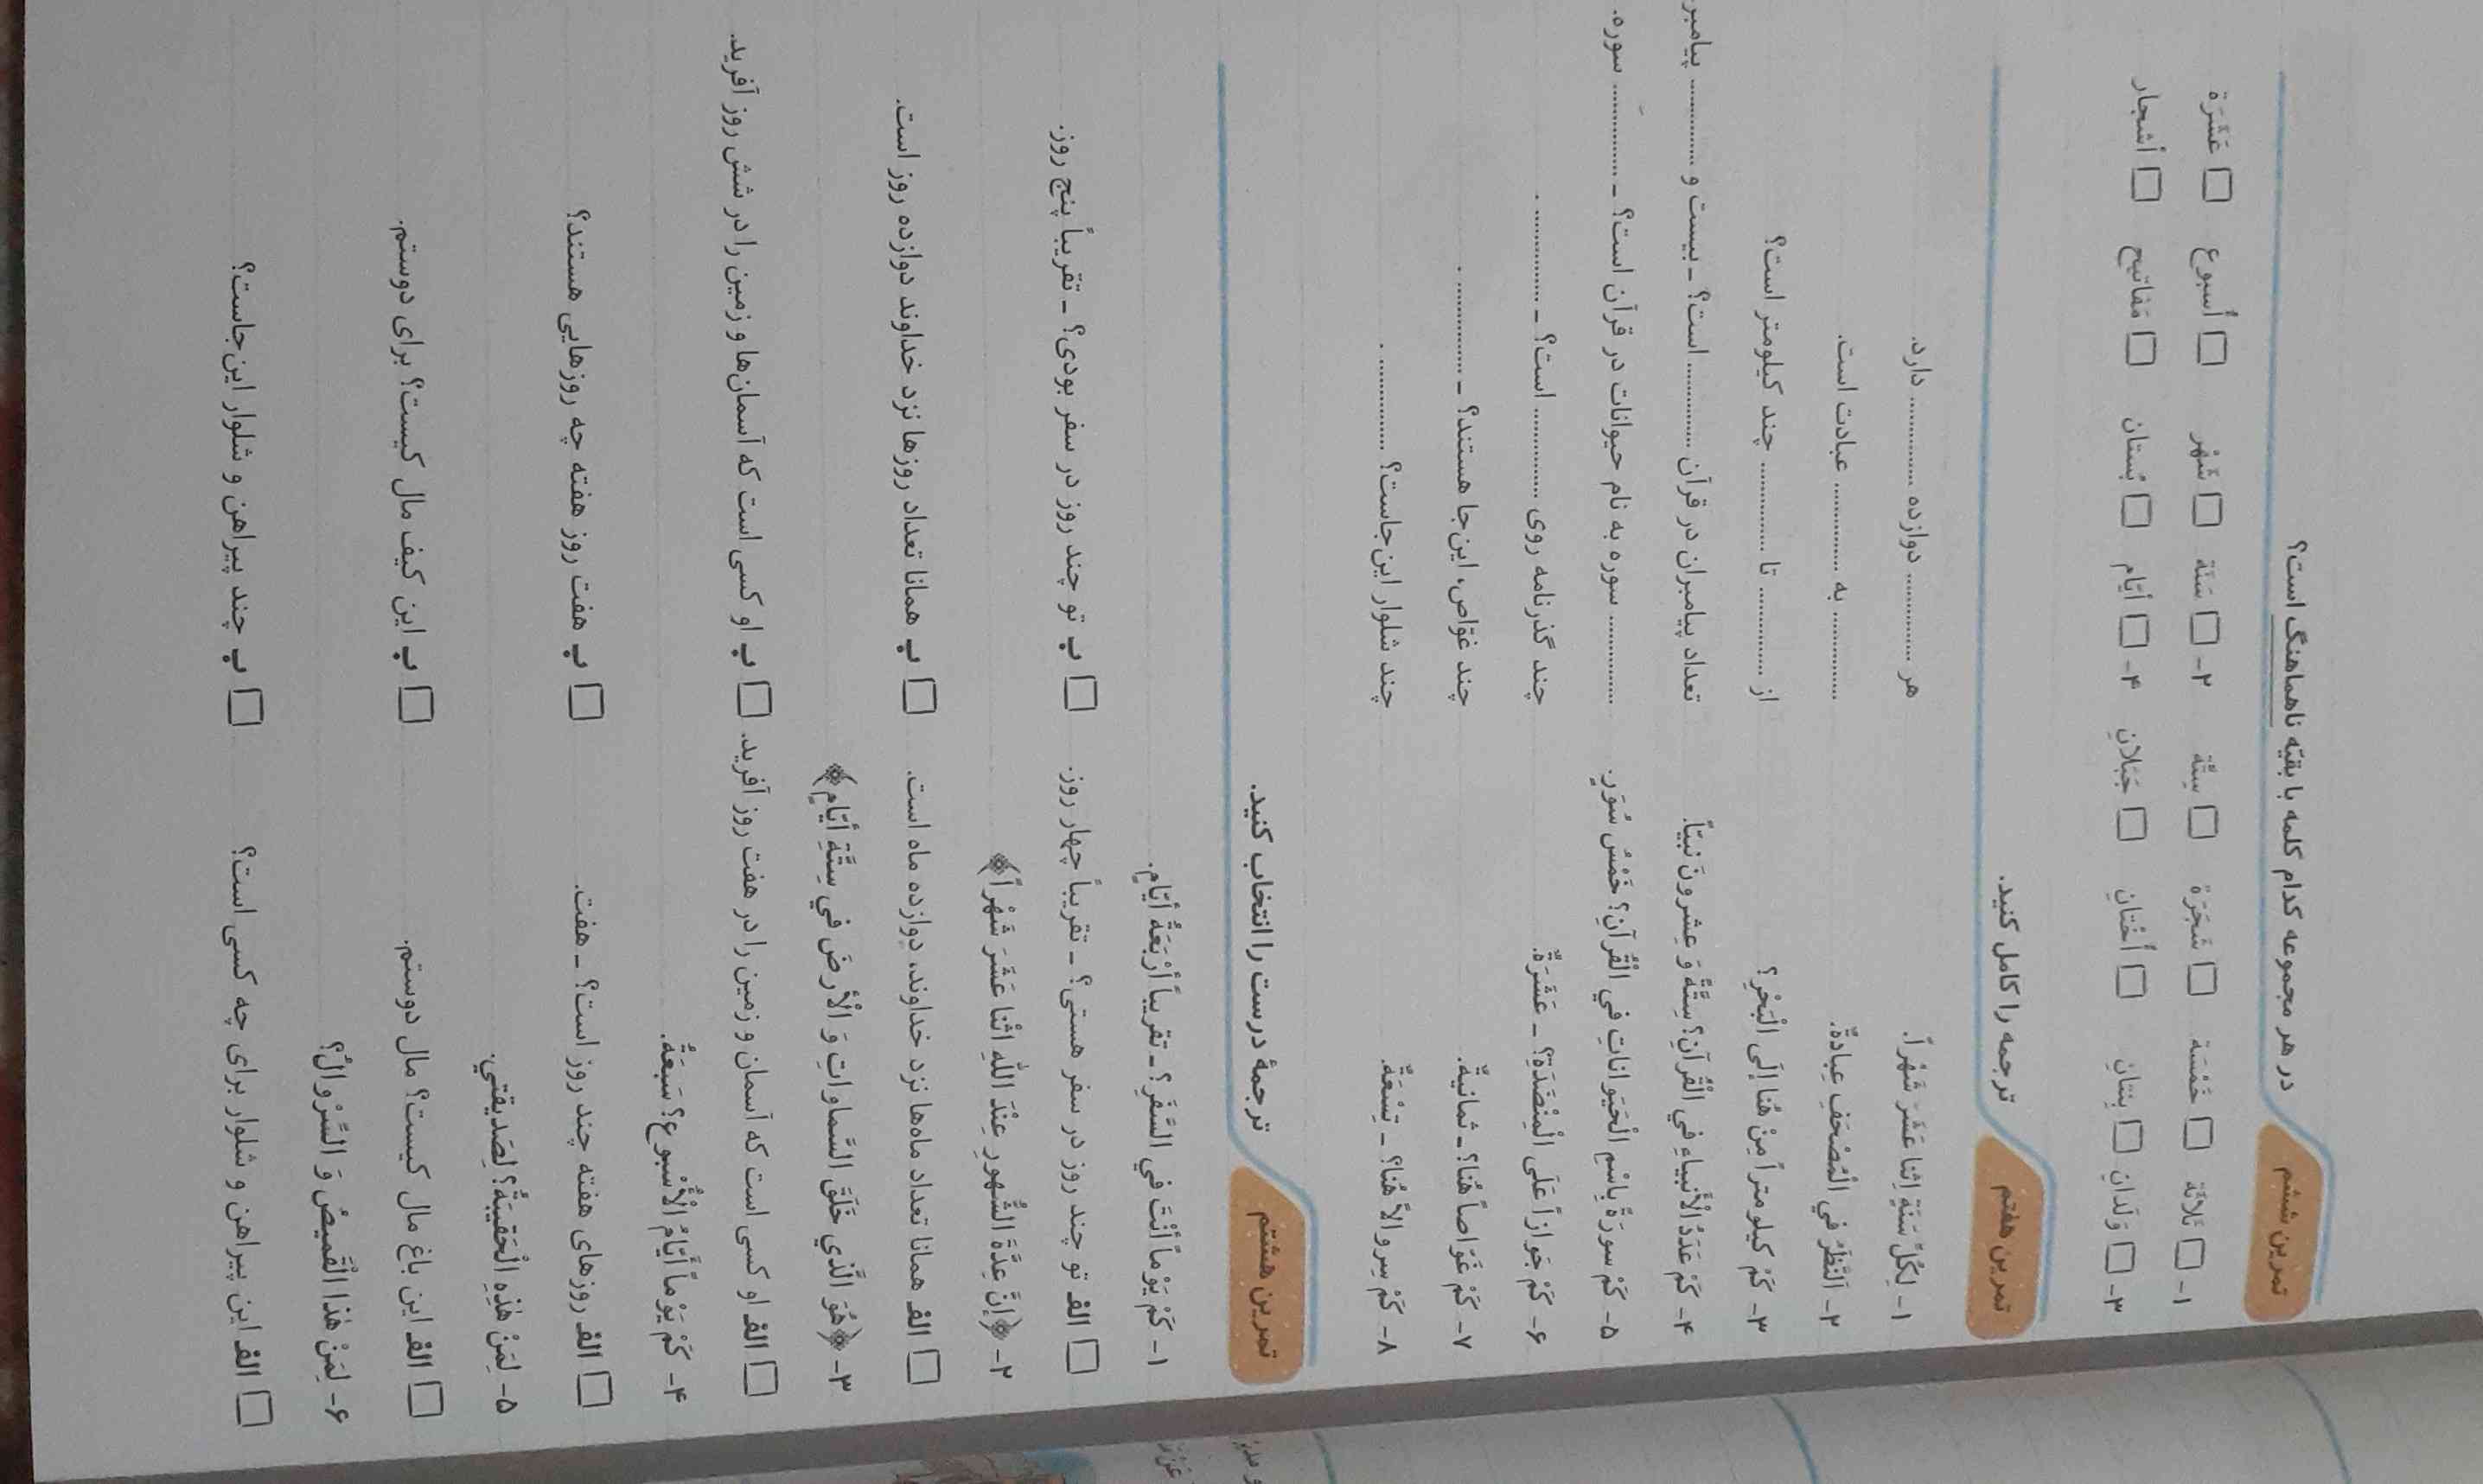 تمرین ششم در هر مجموعه کدام کلمه با بقیّه ناهماهنگ است؟
۱- □ ثَلاثَة □ خَمْسَة □ شَجَرَة □ سِتَّة ۲- □ سَنَة □ شَهْر □ أُسبوع □ عَشَرَة
۳- □ وَلَدانِ □ بِنتانِ □ أُخْتانِ □ جَبَلانِ ۴- □ أیّام □ بُستان □ مَفاتیح □ أشجار
تمرین هفتم ترجمه را کامل کنید.
۱- لِکُلِّ سَنَةٍ اِثنا عَشَرَ شَهْراً. هر ............ دوازده ............ دارد.
۲- اَلنَّظَرُ في الْمُصْحَفِ عِبادَةٌ. ............ به ............ عبادت است.
۳- کَمْ کیلومتراً مِنْ هُنا إلَی الْبَحْرِ؟ از ............ تا ............ چند کیلومتر است؟
۴- کَمْ عَدَدُ الْأنبیاءِ في الْقُرآنِ؟ سِتَّةٌ وَ عِشرونَ نَبیّاً. تعداد پیامبران در قرآن ............ است؟ ـ بیست و ............ پیامبر
۵- کَمْ سورَةً بِاسْمِ الْحَیَواناتِ في الْقُرآنِ؟ خَمْسُ سُوَرٍ. ............ سوره به نام حیوانات در قرآن است؟ ـ ............ سوره.
۶- کَمْ جَوازاً عَلَی الْمِنْضَدَةِ؟ ـ عَشَرَةٌ. چند گذرنامه روی ............ است؟ ـ ............ .
۷- کَمْ غَوّاصاً هُنا؟ ـ ثمانیةٌ. چند غوّاص، این‌جا هستند؟ ـ ............ .
۸- کَمْ سِروالاً هُنا؟ ـ تِسْعَةٌ. چند شلوار این‌جاست؟ ............ .
تمرین هشتم ترجمهٔ درست را انتخاب کنید.
۱- کَمْ یَوْماً أنْتَ في السَّفَرِ؟ ـ تقریباً أرْبَعَةُ أیّامٍ.
□ الف تو چند روز در سفر هستی؟ ـ تقریباً چهار روز. □ ب تو چند روز در سفر بودی؟ ـ تقریباً پنج روز.
۲- ﴿إنَّ عِدَّةَ الشُّهورِ عِنْدَ اللهِ اثْنا عَشَرَ شَهْراً﴾
□ الف همانا تعداد ماه‌ها نزد خداوند، دوازده ماه است. □ ب همانا تعداد روزها نزد خداوند دوازده روز است.
۳- ﴿هُوَ الَّذي خَلَقَ السَّماواتِ وَ الْأرضَ في سِتَّةِ أیّامٍ﴾
□ الف او کسی است که آسمان و زمین را در هفت روز آفرید. □ ب او کسی است که آسمان‌ها و زمین را در شش روز آفرید.
۴- کَمْ یَوْماً أیّامُ الْأُسْبوعِ؟ سَبعَةٌ.
□ الف روزهای هفته چند روز است؟ ـ هفت. □ ب هفت روز هفته چه روزهایی هستند؟
۵- لِمَنْ هٰذِهِ الْحَقیبَةُ؟ لِصَدیقتي.
□ الف این باغ مال کیست؟ مال دوستم. □ ب این کیف مال کیست؟ برای دوستم.
۶- لِمَنْ هٰذا الْقَمیصُ وَ السِّرْوالُ؟
□ الف این پیراهن و شلوار برای چه کسی است؟ □ ب چند پیراهن و شلوار این‌جاست؟